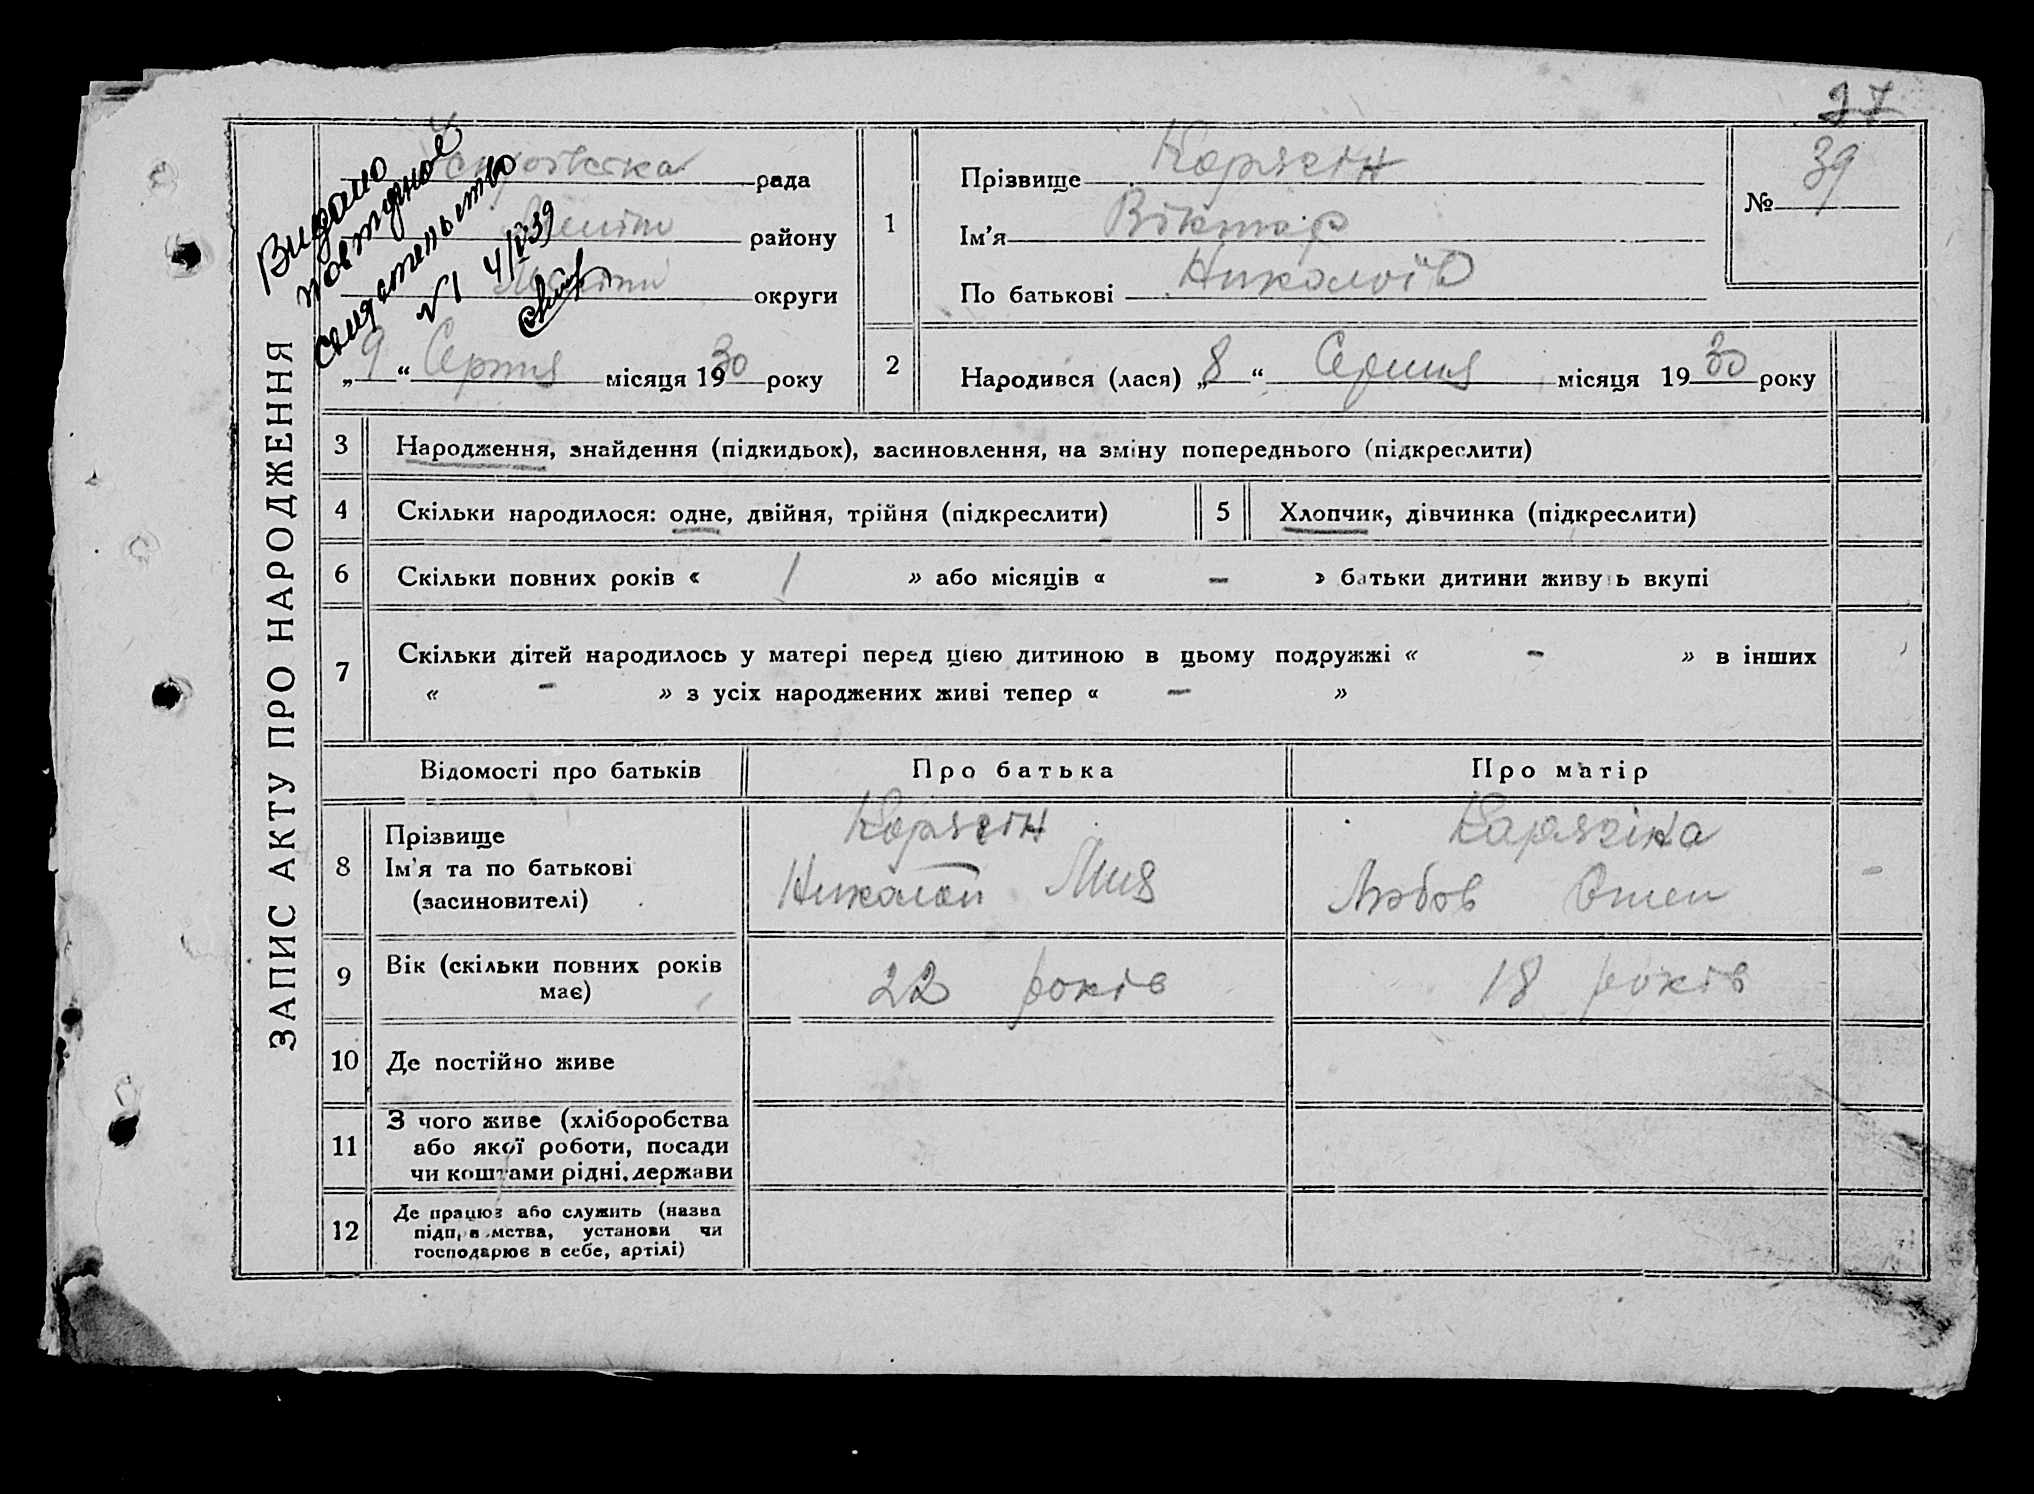 27
ЗАПИС АКТУ ПРО НАРОДЖЕННЯ
Видано
повторное
свидетельство
№1 4/V 39
рада
району
округи
„9“ Серпня місяця 1930 року
1
Прізвище Корягін
Ім’я Віктор
По батькові Николаїв
№ 39
2
Народився (лася) „8“ Серпня місяця 1930 року
3 Народження, знайдення (підкидьок), засиновлення, на зміну попереднього (підкреслити)
4 Скільки народилося: одне, двійня, трійня (підкреслити) 5 Хлопчик, дівчинка (підкреслити)
6 Скільки повних років « 1 » або місяців « - » батьки дитини живуть вкупі
7 Скільки дітей народилось у матері перед цією дитиною в цьому подружжі « - » в інших
« - » з усіх народжених живі тепер « - »
Відомості про батьків Про батька Про матір
8 Прізвище
Ім’я та по батькові
(засиновителі)
Корягін
Николай
Карягіна
Любов
9 Вік (скільки повних років
має)
22 років
18 років
10 Де постійно живе
11 З чого живе (хліборобства
або якої роботи, посади
чи коштами рідні, держави
12 Де працює або служить (назва
підприємства, установи чи
господарює в себе, артілі)